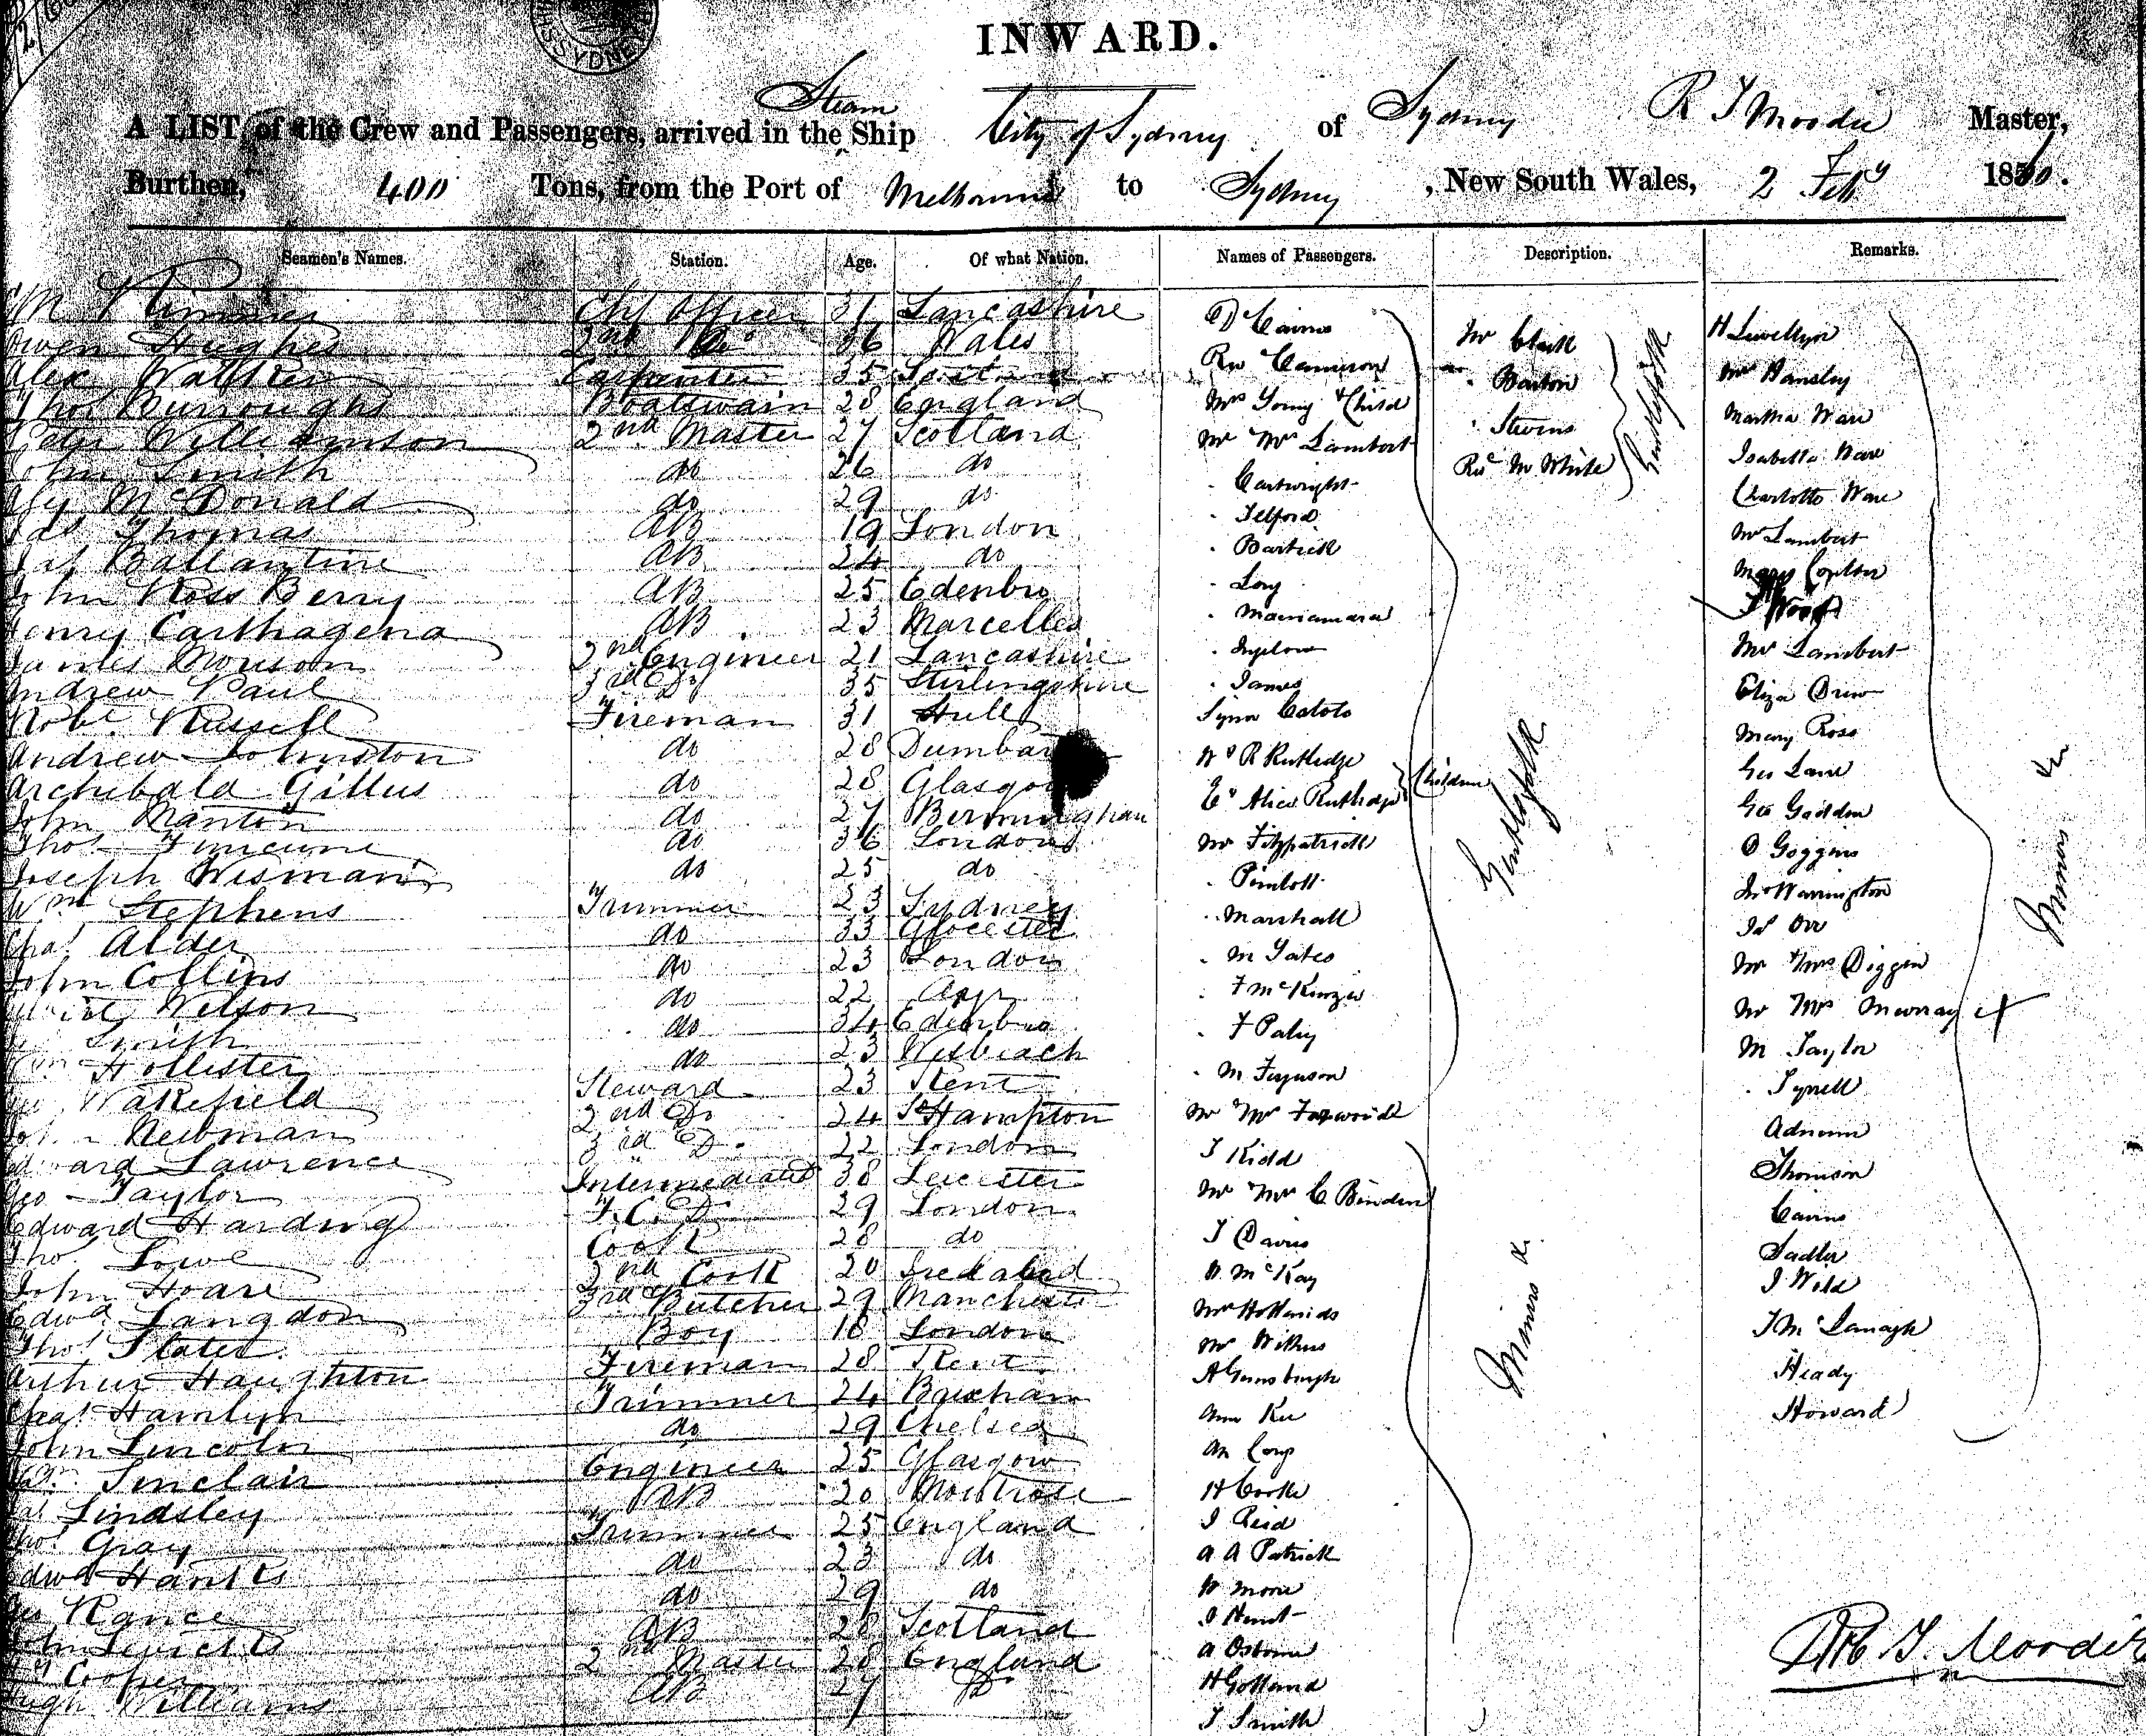 INWARD.
A LIST of the Crew and Passengers, arrived in the Steam Ship City of Sydney of Sydney R T Moodie Master,
Burthen, 400 Tons, from the Port of Melbourne to Sydney, New South Wales, 2 Feby 1860.
Seamen's Names. Station. Age. Of what Nation. Names of Passengers. Description. Remarks.
Chf Officer 31 Lancashire
Owen Hughes 2nd Do 36 Wales
Alex Carpenter 35
Thos Burroughs Boatswain 28 England
Peter Williamson 2nd Master 27 Scotland
John Smith do 26 do
McDonald do 29 do
Jas Thomas AB 19 London
Jas Ballantine AB 24 do
John Ross Berry AB 25 Edenbro
Henry Carthagena AB 23 Marcelles
James 2nd Engineer 21 Lancashire
Andrew Paul 3rd Do 35 Sterlingshire
Robt Russell Fireman 31 Hull
Andrew Johnston do 28 Dumbar
Archibald Gillus do 28 Glasgow
John Manton do 27 Bermingham
Thos do 36 London
Joseph Wisman do 25 do
Wm Stephens Trimmer 23 Sydney
Chas Alder do 33 Glocester
John Collins do 23 London
Wilson do 22 Ayr
Smith do 34 Edenbro
Wm Hollister do 23 Wisbeach
Wakefield Steward 23 Kent
Newman 2nd Do 24 SoHampton
Edward Lawrence 3rd Do 22 London
Geo Taylor Intermediate 38 Leicester
Edward Harding F.C. Do 29 London
Thos Lowe Cook 28 do
John Hoare 2nd Cook 20 Ireland
Edwd Langdon 3rd Butcher 29 Manchester
Thos Slater Boy 18 London
Arthur Haughton Fireman 28 Kent
Chas Hamlyn Trimmer 24 Brixham
John Lincoln do 29 Chelsea
Sinclair Engineer 25 Glasgow
Jas Lindsley AB 20 Montrose
Thos Gray Trimmer 25 England
Edwd do 23 do
Geo Rance do 29 do
John AB 28 Scotland
Cooper 2nd Master 28 England
Hugh Williams AB 27 Do
D Cairns
Rev Cameron
Mrs Young & Child
Mr Mrs Lambert
Cartwright
Telford
Long
Macnamara
James
W & R Rutledge
E & Alice Rutledge } Children
Mr Fitzpatrick
Marshall
M Yates
F McKenzie
F Paley
M Ferguson
J Kidd
Mr Mrs C Binden
J Davis
W McKay
Mr Wilkins
H Cooke
J Reid
A A Patrick
W Moore
J Hunt
A Osborne
H Golland
J Smith
Gentlefolk
Miners &c
Mr Clark
Barton
Stevens
Rev Mr White
Gentlefolk
H Lewellyn
Martha Ware
Isabella Ware
Charlotte Ware
Mr Lambert
Mr Lambert
Eliza Drew
Mary Ross
Geo Lane
Geo Gaddon
O Goggins
Jno Warrington
Js Orr
Mr & Mrs Diggin
Mr Mrs Murray
M Taylor
Tyrell
Thomson
Cairns
Sadler
J Wild
Heady
Howard
Miners &c
Rob T. Moodie